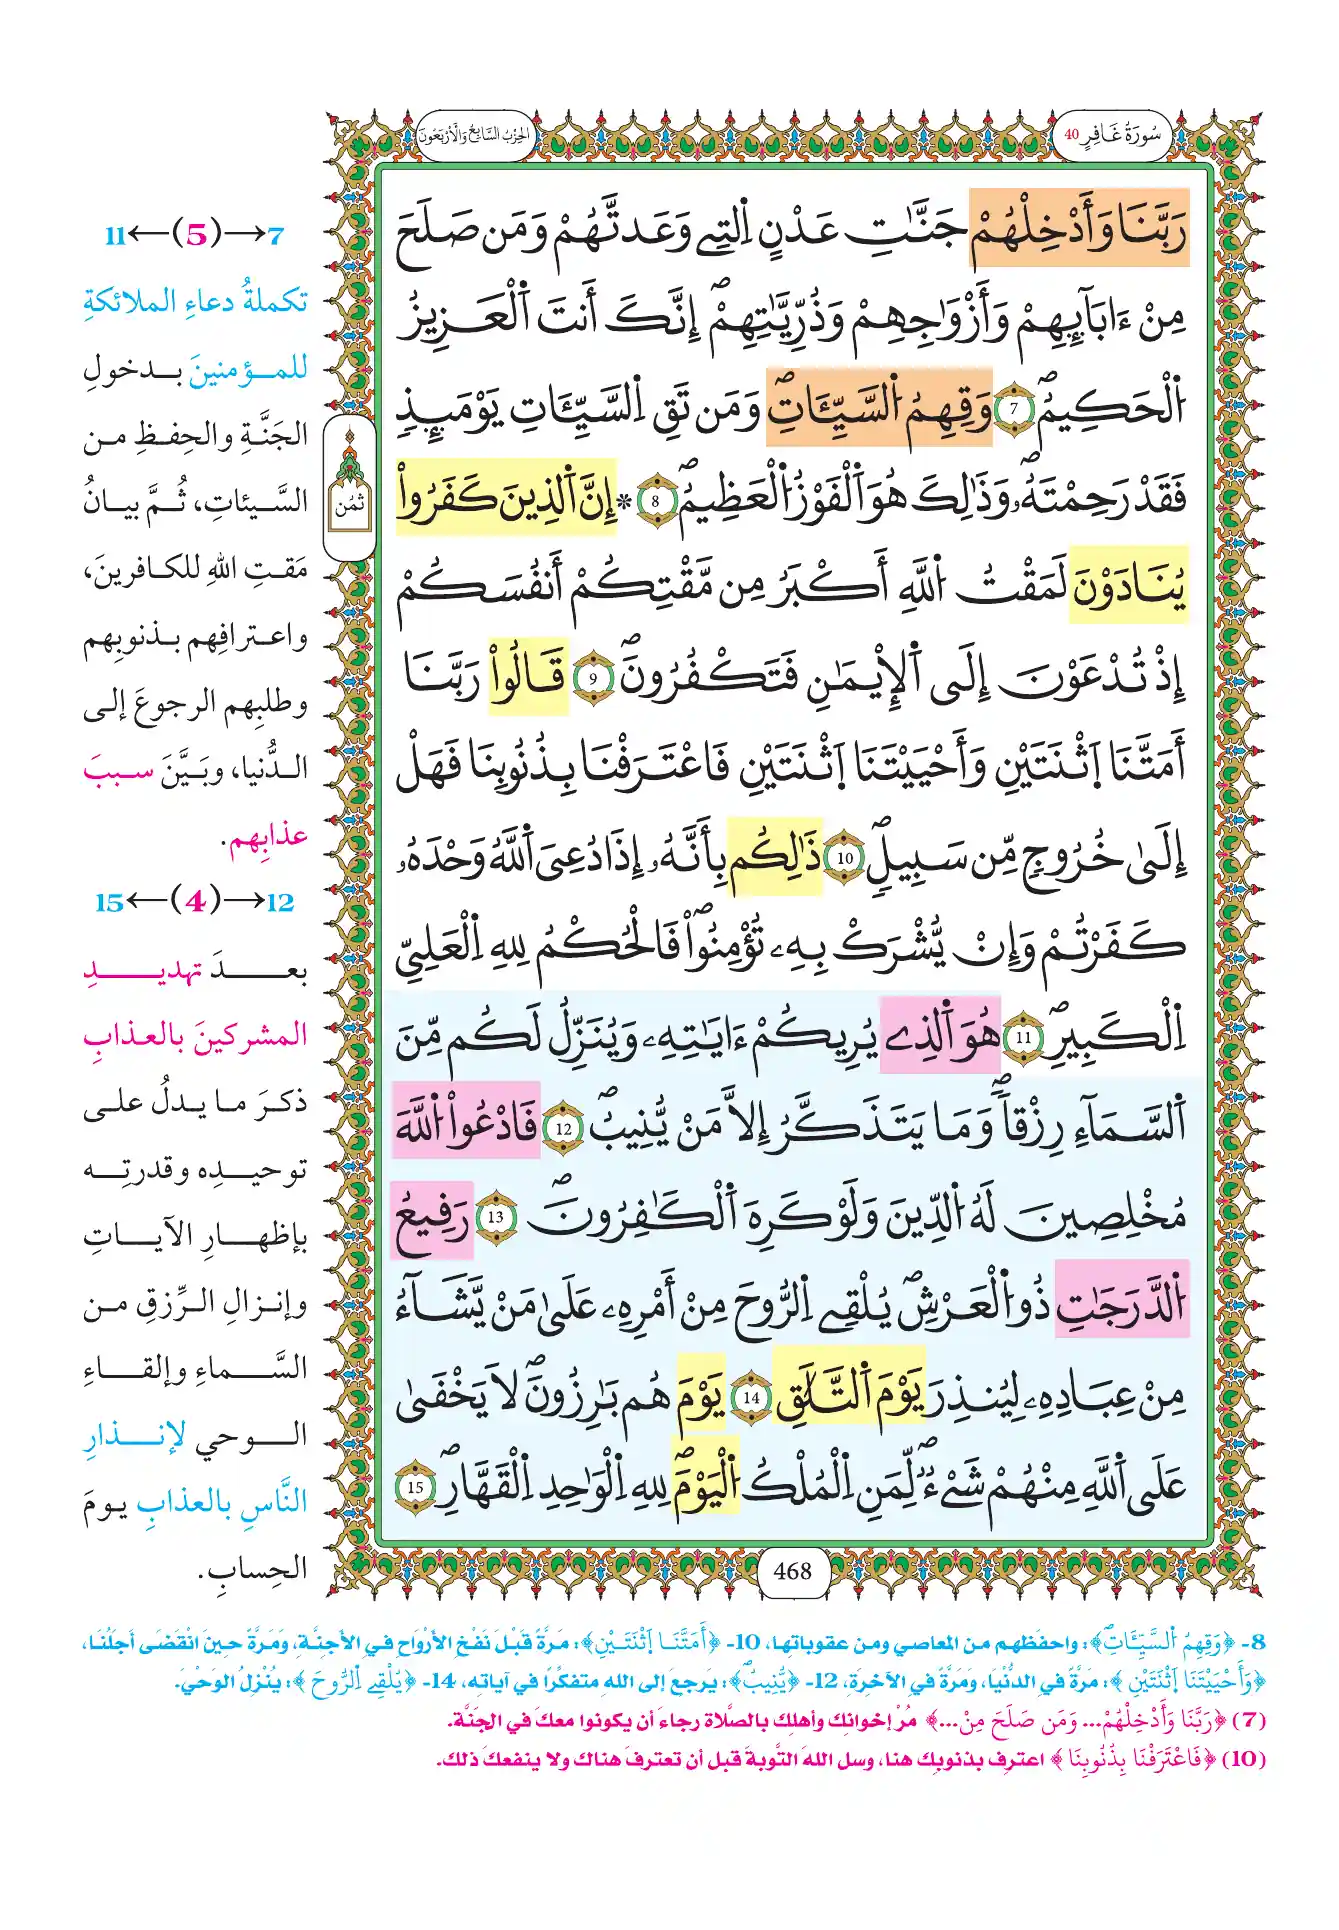 سُورَةُ غَافِرٍ 40
الحِزْبُ السَّابِعُ وَالْأَرْبَعُونَ
رَبَّنَا وَأَدْخِلْهُمْ جَنَّٰتِ عَدْنٍ اِ۬لتِے وَعَدتَّهُمْ وَمَن صَلَحَ
مِنْ ءَابَآئِهِمْ وَأَزْوَٰجِهِمْ وَذُرِّيَّٰتِهِمْۖ إِنَّكَ أَنتَ اَ۬لْعَزِيزُ
اُ۬لْحَكِيمُۖ 7 وَقِهِمُ اُ۬لسَّيِّـَٔاتِۖ وَمَن تَقِ اِ۬لسَّيِّـَٔاتِ يَوْمَئِذٖ
فَقَدْ رَحِمْتَهُۥۖ وَذَٰلِكَ هُوَ اَ۬لْفَوْزُ اُ۬لْعَظِيمُۖ 8 * إِنَّ اَ۬لذِينَ كَفَرُواْ
يُنَادَوْنَ لَمَقْتُ اُ۬للَّهِ أَكْبَرُ مِن مَّقْتِكُمْ أَنفُسَكُمْ
إِذْ تُدْعَوْنَ إِلَى اَ۬لْإِيمَٰنِ فَتَكْفُرُونَۖ 9 قَالُواْ رَبَّنَا
أَمَتَّنَا اَ۪ثْنَتَيْنِ وَأَحْيَيْتَنَا اَ۪ثْنَتَيْنِ فَاعْتَرَفْنَا بِذُنُوبِنَا فَهَلْ
إِلَىٰ خُرُوجٖ مِّن سَبِيلٖۖ 10 ذَٰلِكُم بِأَنَّهُۥ إِذَا دُعِيَ اَ۬للَّهُ وَحْدَهُۥ
كَفَرْتُمْ وَإِنْ يُّشْرَكْ بِهِۦ تُؤْمِنُواْۖ فَالْحُكْمُ لِلهِ اِ۬لْعَلِيِّ
اِ۬لْكَبِيرِۖ 11 هُوَ اَ۬لذِے يُرِيكُمْ ءَايَٰتِهِۦ وَيُنَزِّلُ لَكُم مِّنَ
اَ۬لسَّمَآءِ رِزْقاٗۖ وَمَا يَتَذَكَّرُ إِلَّا مَنْ يُّنِيبُۖ 12 فَادْعُواْ اُ۬للَّهَ
مُخْلِصِينَ لَهُ اُ۬لدِّينَ وَلَوْ كَرِهَ اَ۬لْكَٰفِرُونَۖ 13 رَفِيعُ
اُ۬لدَّرَجَٰتِ ذُو اُ۬لْعَرْشِۖ يُلْقِے اِ۬لرُّوحَ مِنْ أَمْرِهِۦ عَلَىٰ مَنْ يَّشَآءُ
مِنْ عِبَادِهِۦ لِيُنذِرَ يَوْمَ اَ۬لتَّلَٰقِ 14 يَوْمَ هُم بَٰرِزُونَۖ لَا يَخْفَىٰ
عَلَى اَ۬للَّهِ مِنْهُمْ شَےْءٞۖ لِّمَنِ اِ۬لْمُلْكُ اُ۬لْيَوْمَۖ لِلهِ اِ۬لْوَٰحِدِ اِ۬لْقَهَّارِۖ 15
ثُمُن
468
7→(5)←11
تكملةُ دعاءِ الملائكةِ
للمؤمنينَ بدخولِ
الجَنَّةِ والحِفظِ من
السَّيئاتِ، ثُمَّ بيانُ
مَقتِ اللهِ للكافرينَ،
واعترافِهم بذنوبِهم
وطلبِهم الرجوعَ إلى
الدُّنيا، وبَيَّنَ سببَ
عذابِهم.
12→(4)←15
بعدَ تهديدِ
المشركينَ بالعذابِ
ذكرَ ما يدلُ على
توحيدِه وقدرتِه
بإظهارِ الآياتِ
وإنزالِ الرِّزقِ من
السَّماءِ وإلقاءِ
الوحي لإنذارِ
النَّاسِ بالعذابِ يومَ
الحِسابِ.
8- ﴿وَقِهِمُ اُ۬لسَّيِّـَٔاتِۖ﴾: واحفَظهم من المعاصي ومن عقوباتِها، 10- ﴿أَمَتَّنَا اَ۪ثْنَتَيْنِ﴾: مَرَّةً قَبْلَ نَفْخِ الأرْوَاحِ فِي الأجِنَّةِ، وَمَرَّةً حِينَ انْقَضَى أجَلُنَا،
﴿وَأَحْيَيْتَنَا اَ۪ثْنَتَيْنِ﴾: مَرَّةً في الدُّنْيَا، ومَرَّةً في الآخِرَةِ، 12- ﴿يُّنِيبُۖ﴾: يَرجعُ إلى اللهِ متفكِّرًا في آياتِه، 14- ﴿يُلْقِے اِ۬لرُّوحَ﴾: يُنْزِلُ الوَحْيَ.
(7) ﴿رَبَّنَا وَأَدْخِلْهُمْ... وَمَن صَلَحَ مِنْ...﴾ مُرْ إخوانَك وأهلَك بالصَّلاة رجاءَ أن يكونوا معكَ في الجَنَّة.
(10) ﴿فَاعْتَرَفْنَا بِذُنُوبِنَا﴾ اعترِف بذنوبِك هنا، وسل اللهَ التَّوبةَ قبل أن تعترفَ هناك ولا ينفعكَ ذلك.